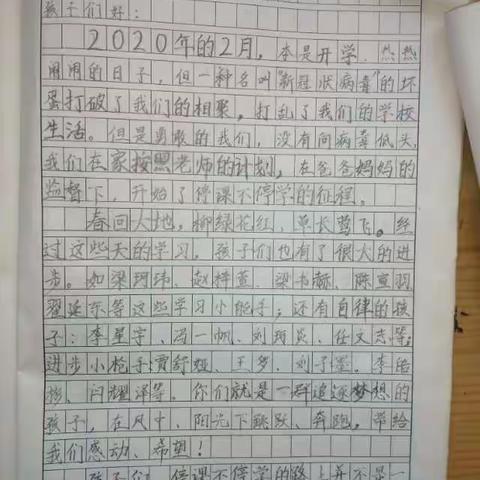 孩子们好:
2020年的2月,本是开学、热热
闹闹的日子,但一种名叫"新冠状病毒"的坏
蛋打破了我们的相聚,打乱了我们的学校
生活。但是勇敢的我们,没有向病毒低头,
我们在家按照老师的计划,在爸爸妈妈的
监督下,开始了停课不停学的征程。
春回大地,柳绿花红,草长莺飞。经
过这些天的学习,孩子们也有了很大的进
步。如梁珂玮、赵梓萱、梁书赫、陈宣羽
翟延东等这些学习小能手;还有自律的孩
子:李星宇、冯一帆、刘珂炎、任文志等;
进步小枪手:贾舒娅、王梦、刘子墨、李皓
、闫耀泽等。你们就是一群追逐梦想的
孩子,在风中、阳光下跳跃、奔跑,带给
我们感动、希望!
孩子们,停课不停学的路上并不是一